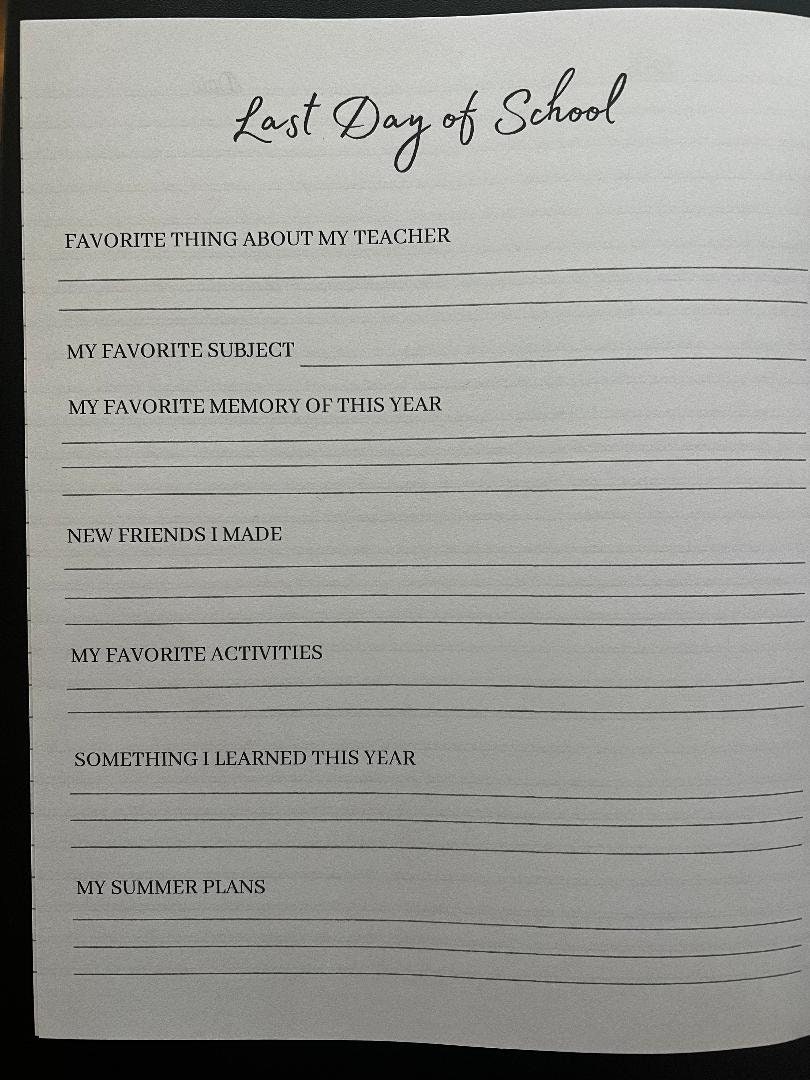 Last Day of School
FAVORITE THING ABOUT MY TEACHER
MY FAVORITE SUBJECT
MY FAVORITE MEMORY OF THIS YEAR
NEW FRIENDS I MADE
MY FAVORITE ACTIVITIES
SOMETHING I LEARNED THIS YEAR
MY SUMMER PLANS